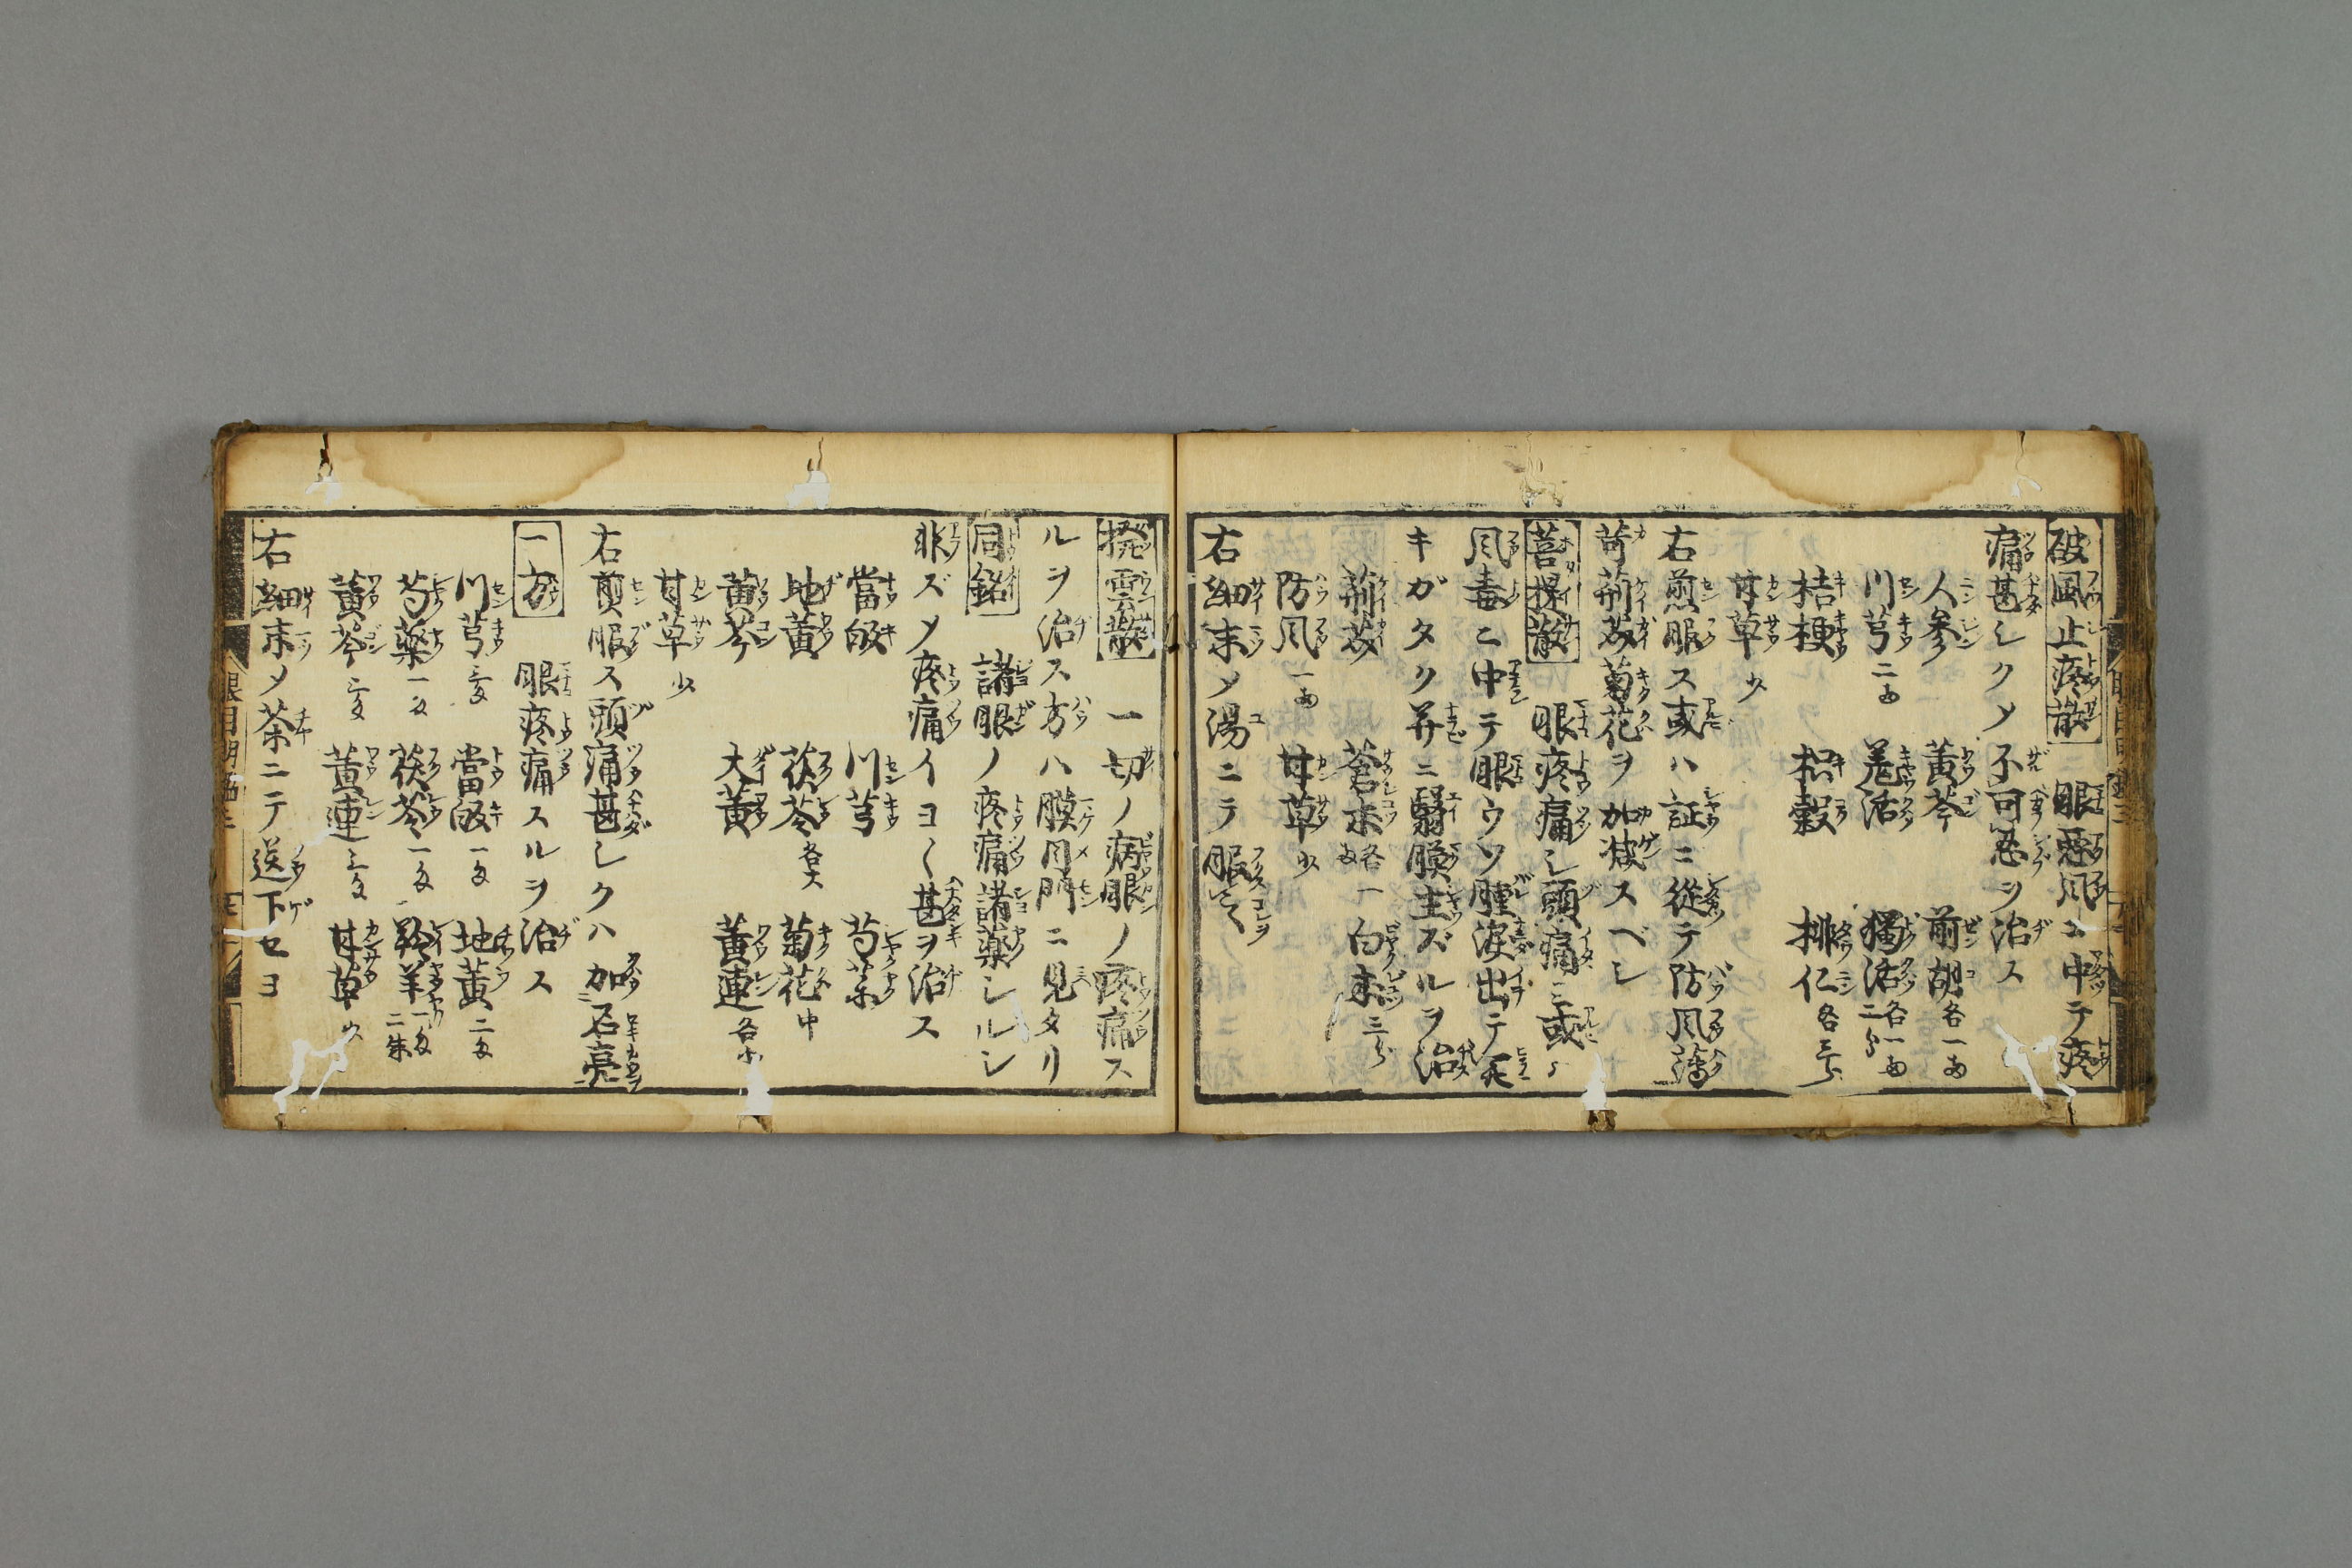 破風止疼散 眼悪風ニ中テ疼
痛甚シクメ不可忍ヲ治ス
人参 黄芩 前胡各一両
川芎二両 羗活 獨活各一両二分
桔梗 枳穀 桃仁各三分
甘草少
右煎服ス或ハ証ニ従テ防風薄
荷荊芥菊花ヲ加減スベシ
菩提散 眼疼痛シ頭痛ミ或ハ
風毒ニ中テ眼ウツ腫涙出テ
キガタク并ニ翳膜生ズルヲ治
荊芥 蒼朮各一 白朮三分
防風一両 甘草少
右細末メ湯ニテ服之
撥雲散 一切ノ病眼ノ疼痛ス
ルヲ治ス方ハ膜目門ニ見タリ
同銘 諸眼ノ疼痛諸薬シルシ
非ズメ疼痛イヨ〱甚ヲ治ス
當皈 川芎 芍薬
地黄 茯苓各大 菊花中
黄芩 大黄 黄連各小
甘草少
右煎服ス頭痛甚シクハ加石膏
一方 眼疼痛スルヲ治ス
川芎 當皈一匁 地黄二匁
芍藥一匁 茯苓一匁 羚羊一匁二朱
黄芩 黄連 甘草少
右細末メ茶ニテ送下セヨ